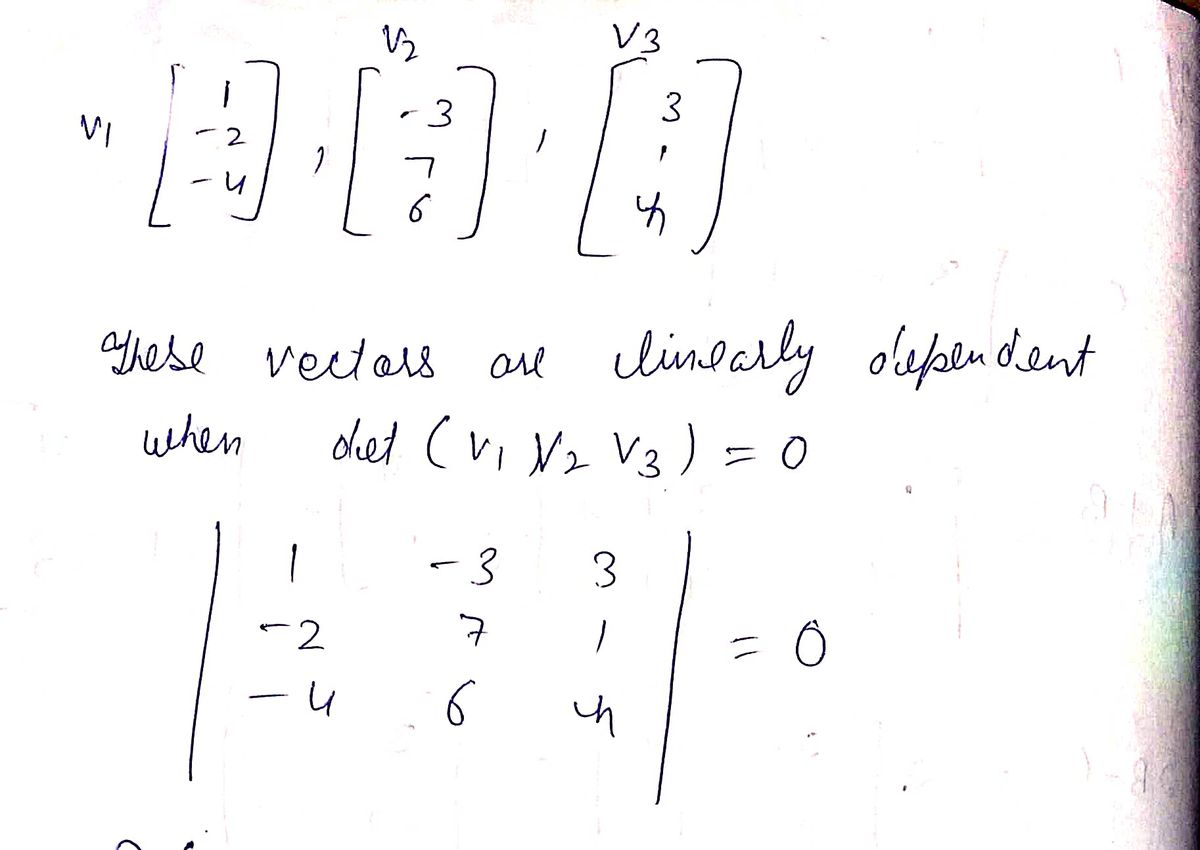 v1 [1 -2 -4], v2 [-3 7 6], v3 [3 1 h]
These vectors are linearly dependent
when det (v1 v2 v3) = 0
| 1 -3 3 |
| -2 7 1 | = 0
| -4 6 h |